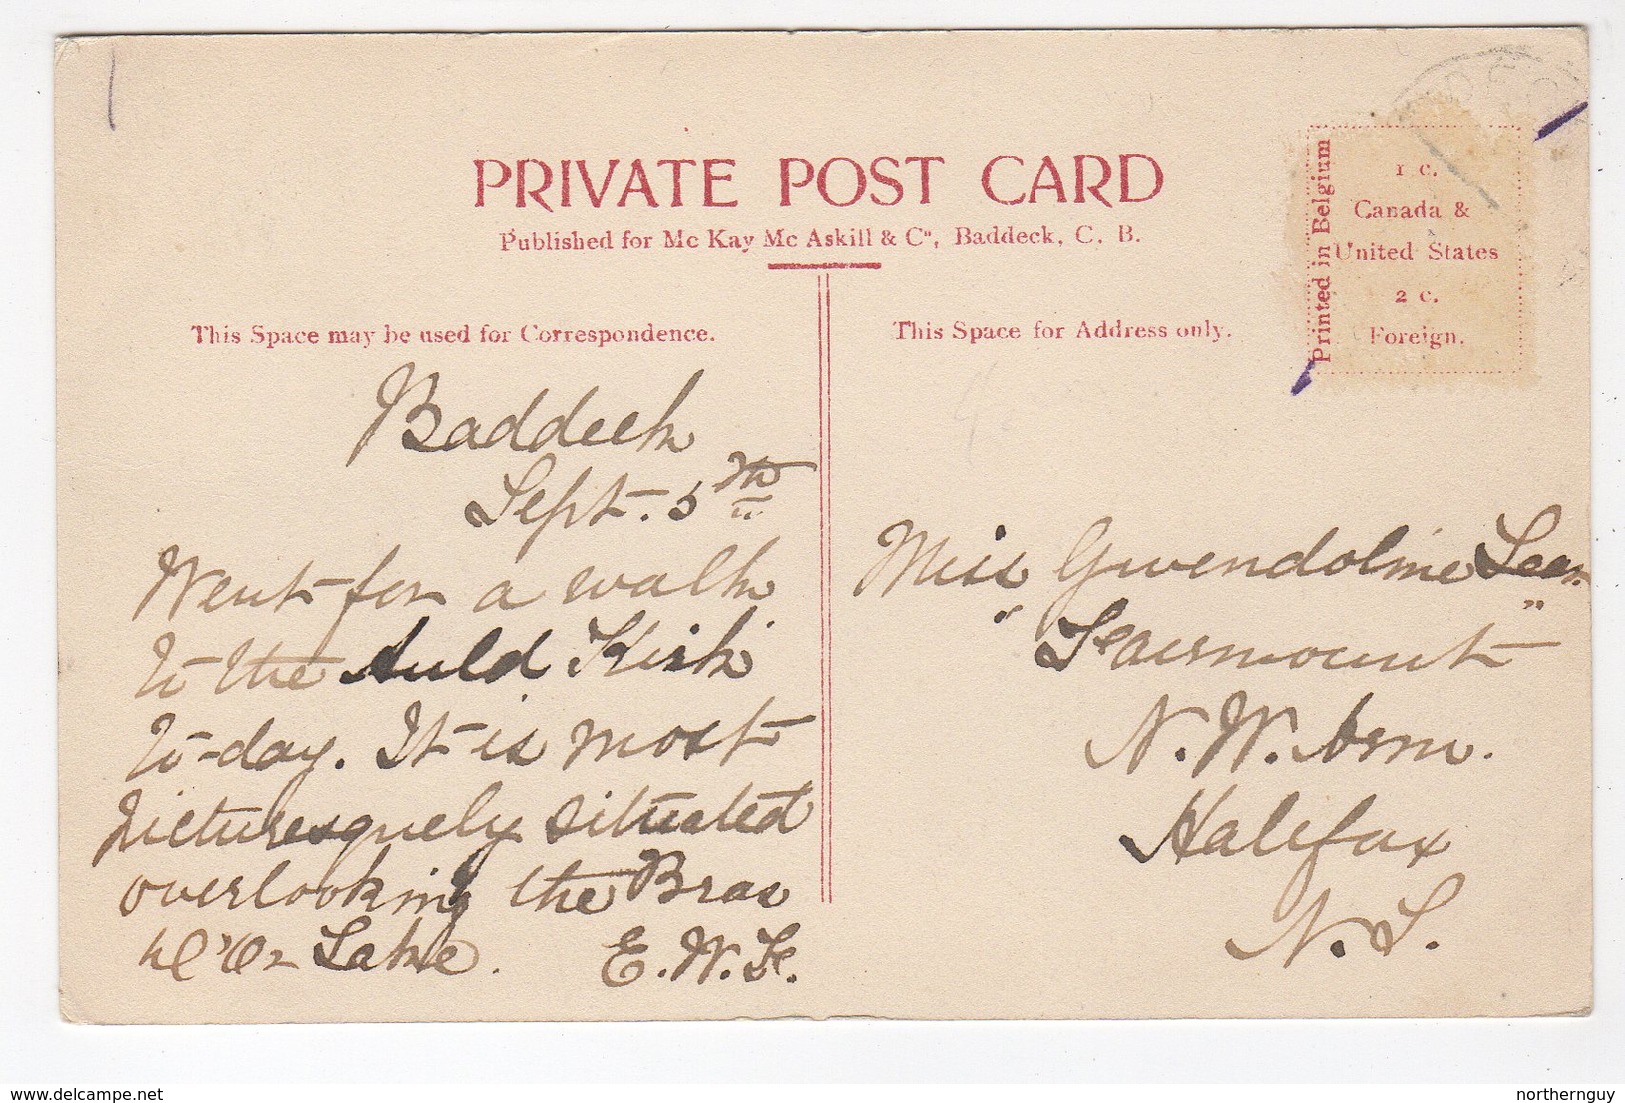 PRIVATE POST CARD
Published for Mc Kay Mc Askill & Co, Baddeck, C. B.
Printed in Belgium
1 c.
Canada &
United States
2 c.
Foreign.
This Space may be used for Correspondence.
This Space for Address only.
Baddeck
Sept. 5th
Went for a walk
to the Auld Kirk
to-day. It is most
picturesquely situated
overlooking the Bras
d'Or Lake. E. W. F.
Miss Gwendoline
Fairmount
N. W. Arm.
Halifax
N. S.
delcampe.net
northernguy